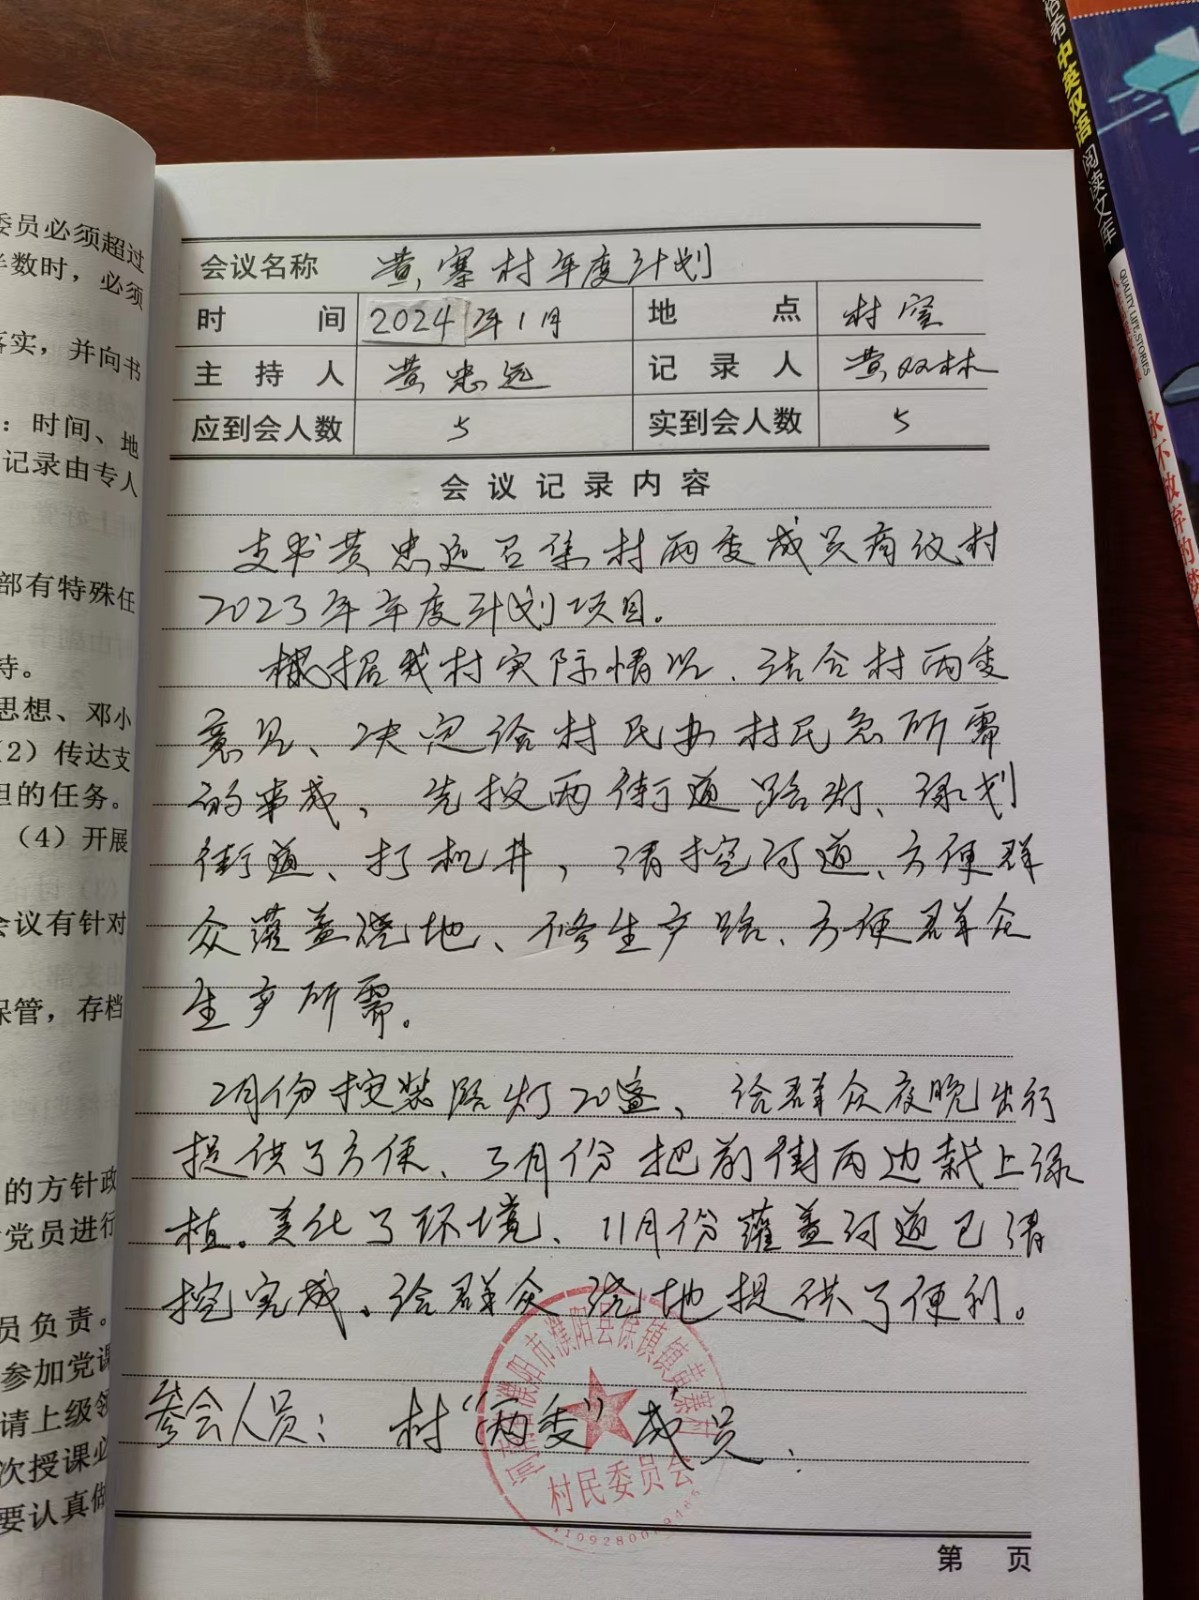 委员必须超过
半数时，必须
落实，并向书
：时间、地
记录由专人
部有特殊任
持。
思想、邓小
（2）传达支
担的任务。
（4）开展
会议有针对
保管，存档
的方针政
党员进行
员负责。
参加党课
请上级领
次授课必
要认真做
中英双语阅读文库
QUALITY LIFE STORIES
永不放弃的
会议名称 黄寨村年度计划
时间 2024年1月 地点 村室
主持人 黄忠远 记录人 黄双林
应到会人数 5 实到会人数 5
会议记录内容
支书黄忠远召集村两委成员商议村
2023年年度计划项目。
根据我村实际情况、结合村两委
意见、决定给村民办村民急所需
的事成、先按两街道路灯、绿划
街道、打机井，清挖河道、方便群
众灌盖浇地、修生产路、方便群众
生产所需。
2月份按装路灯20盏、给群众夜晚出行
提供了方便、3月份把前街两边栽上绿
植。美化了环境、11月份灌盖河道已清
挖完成、给群众浇地提供了便利。
参会人员：村“两委”成员.
河南省濮阳市濮阳县徐镇镇黄寨村
村民委员会
第 页